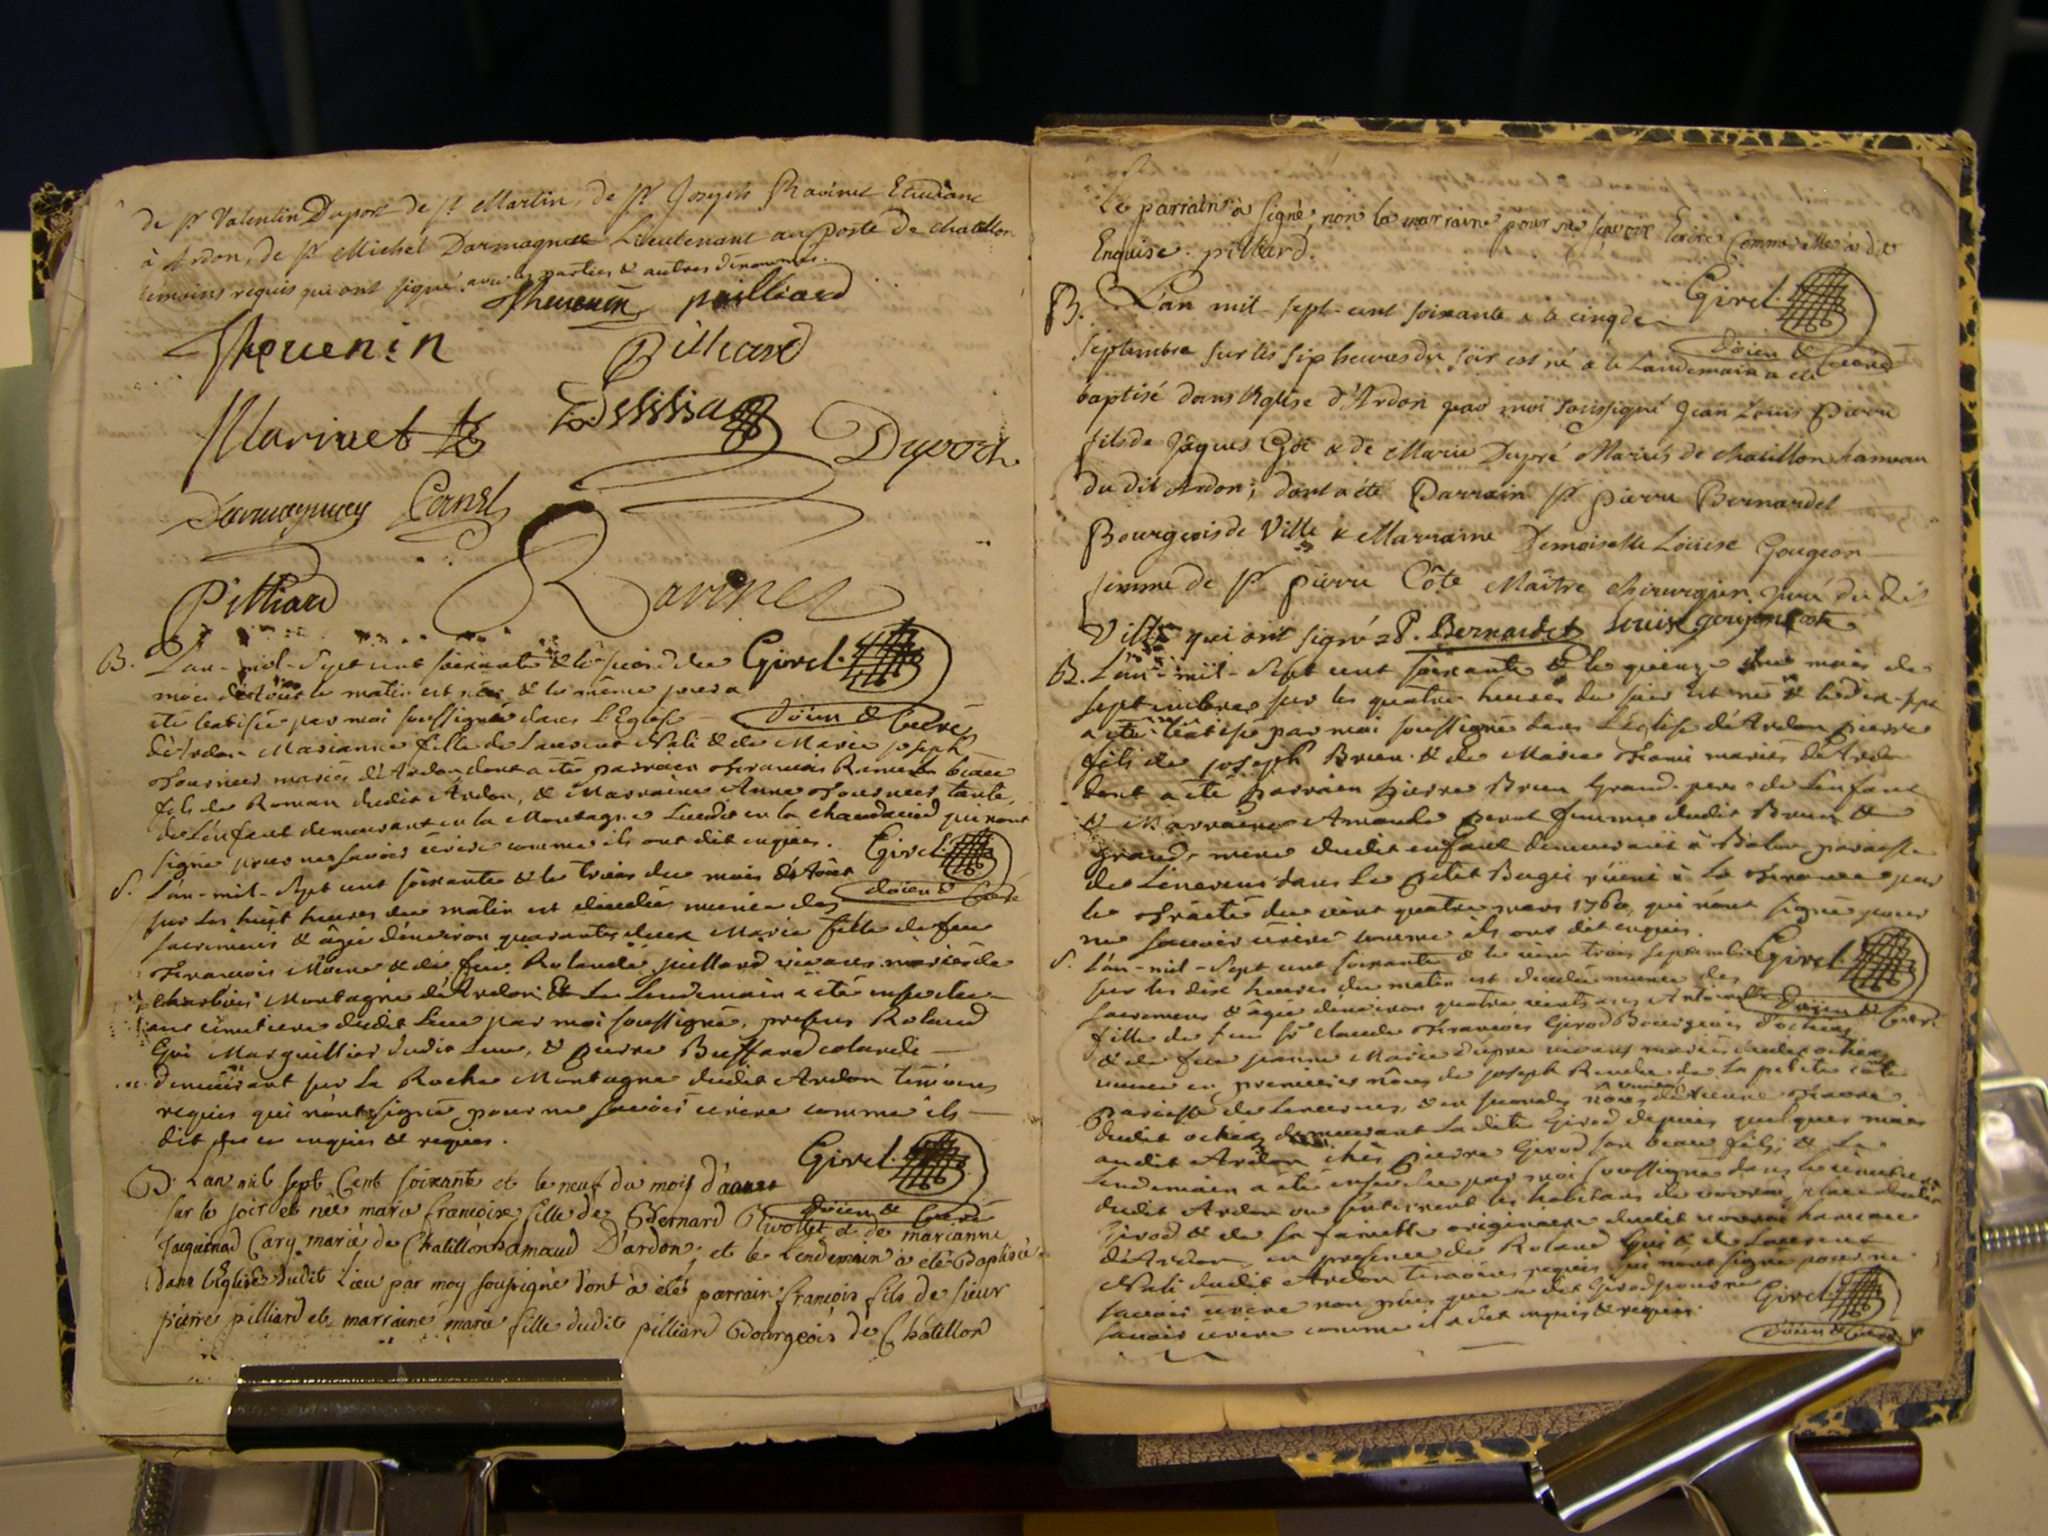 de Sr Valentin Duport de St Martin, de Sr Joseph Ravinet Etudiant
à Ardon, de Sr Michel Darmagnac Lieutenant au poste de chatillon
temoins requis qui ont signé avec les parties & autres dénommés.
Thevenin pailliard
Thevenin Pilliard
Marinet Duport
Darmagnac
Pilliard Ravinet
B. L'an-mil-Sept cent soixante & le second du Girel
mois d'aout le matin est née & le même jour a
été batisée par moi soussigné dans L'Eglise Doïen & Curé
d'Ardon Marianne fille de Laurent & de Marie joseph
mariés d'Ardon dont a été parrain françois beau
fils de Roman dudit Ardon, & Marraine Anne tante
de L'enfant demeurant en la Montagne Lieudit en la qui n'ont
signé pour ne savoir ecrire comme ils ont dit enquis. Girel
S. L'an-mil-Sept cent soixante & le trois du mois d'Aôut Doïen & Curé
sur les huit heures du matin est décédée munie des
sacremens & âgée d'environ quarante deux Marie fille de feu
françois & de feu Rolande juillard vivans mariés de
Montagne d'Ardon & Le Lendemain a été enseveli
au cimetiere dudit Lieu par moi soussigné, presens Roland
Gui Marguillier dudit Lieu, & pierre Buffard
demeurant sur La Roche Montagne dudit Ardon témoins
requis qui n'ont signé pour ne savoir ecrire comme ils
dit de ce enquis & requis.
Girel
B. L'an mil sept Cent soixante et le neuf du mois d'aoust
sur le soir est née marie francoise fille de Bernard Rivollet et de marianne Doïen & Curé
Jacquinod Cary marié de Chatillon hamaud D'ardon, et le Lendemain à eté Baptisée
Dans L'Eglise dudit Lieu par moy soussigné dont à eté parrain françois fils de sieur
pierre pilliard et marraine marie fille dudit pilliard Bourgeois de Chatillon
Le parrain à signé, non la marraine pour ne sçavoir Ecrire Comme elle à dit
Enquise. pilliard.
Girel
B. L'an mil sept-cent soixante & le cinq de
Septembre sur les six heures du soir est né & le Landemain a été Doïen & Curé
baptisé dans l'Eglise d'Ardon par moi soussigné Jean Louis Pierre
fils de Jaques Got & de Marie Dupré Mariés de chatillon hameau
du dit Ardon; dont a été Parrain Sr pierre Bernardet
Bourgeois de Ville & Marraine Demoiselle Louise Gougeon
femme de Sr pierre Côte Maître chirurgien juré du dit
Ville qui ont signé. P. Bernardet Louise goujon cote
B. L'an-mil-Sept cent soixante & le quinze du mois de
septembre sur les quatre heures du soir est né & le dix-sept
a été batisé par moi soussigné dans L'église d'Ardon pierre
fils de joseph Brun & de Marie mariés d'Ardon
dont a été parrain pierre Brun Grand-pere de L'enfant
& Marraine Amande femme dudit Brun &
grande mere dudit enfant demeurant à paroisse
de Lenerens dans Le petit Bugei réuni à La france par
le traité du vint quatre mars 1760, qui n'ont signé pour
ne savoir ecrire comme ils ont dit enquis.
S. L'an-mil-Sept cent soixante & le vint trois septembre Girel
sur les dix heures du matin est décédée munie des
sacremens & âgée d'environ quatre vints ans Antoinette Doïen & Curé
fille de feu Sr claude françois Girod Bourgeois d'ochiaz
& de feu jeanne Marie dupre vivans mariés dudit ochiaz
veuve en premieres nôces de joseph de La petite côte
Paroisse de Lenerens, & en secondes nôces
dudit ochiaz demeurant La dite Girod depuis quelques mois
audit Ardon chés pierre Girod son beau fils, & Le
Lendemain a été enseveli par moi soussigné dans Le cimetiere
dudit Ardon ou s'enterrent les habitans de
Girod & de sa famille originaire dudit hameau
d'Ardon, en presence de Roland Gui & de Laurent
dudit Ardon témoins requis qui n'ont signé pour ne
savoir ecrire non plus que Girod pour ne
savoir ecrire comme il a dit enquis & requis. Girel
Doïen & Curé